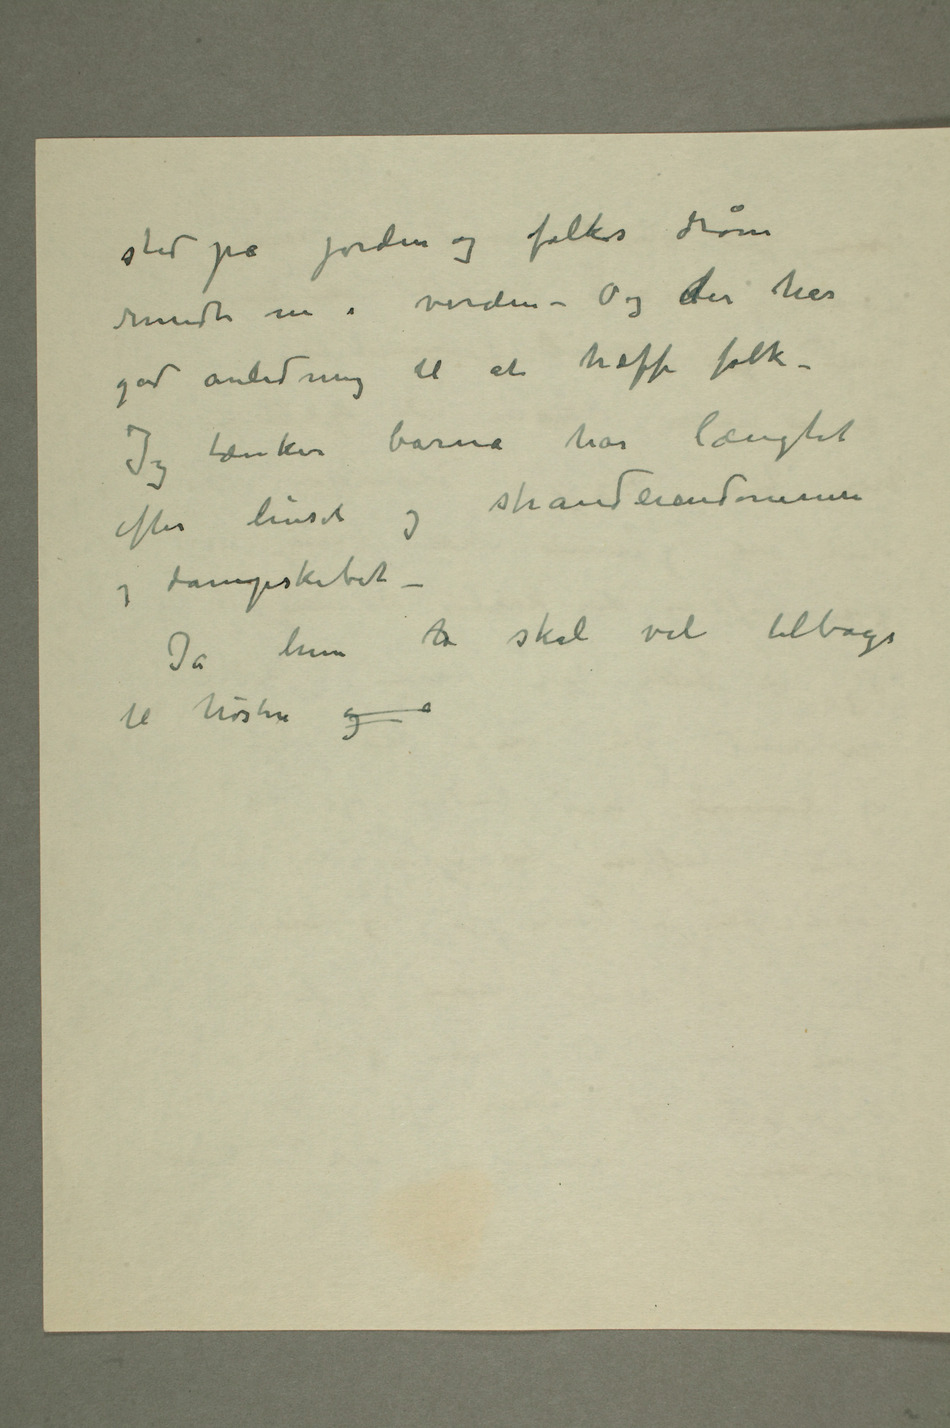 sted på jorden og folks drøm
rundt om i verden – Og der har
god anledning til at træffe folk –
Jeg tænker barna har længtet
efter huset og strandeiendommen
og dampskibet –
Ja hun skal vel tilbage
til høsten og